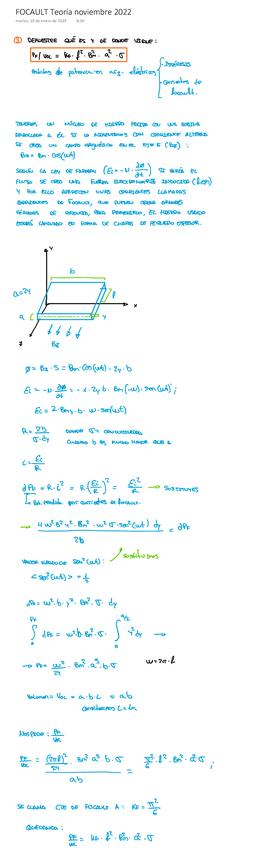 FOCAULT Teoría noviembre 2022
martes, 10 de enero de 2023 9:50
① DEMUESTRE QUÉ ES Y DE DONDE VIENE:
PF/VOL = KF · f² · Bm² · a² · σ
Pérdidas de potencia en máq. eléctricas { · Histéresis
· Corrientes de
Focault.
TENEMOS UN NÚCLEO DE HIERRO HECHO CON UNA BOBINA
CORRIENTE ALTERNA
SE CREA UN CAMPO MAGNÉTICO EN EL EJE Z (Bz):
Bz = Bm · cos(wt)
SEGÚN LA LEY DE FARADAY (Ec = -N · ∂Ø/∂t) SI VARÍA EL
FLUJO SE CREA UNA FUERZA ELECTROMOTRIZ INDUCIDA (fem)
Y POR ELLO APARECEN UNAS CORRIENTES LLAMADAS
CORRIENTES DE FOCAULT, QUE PUEDEN CREAR GRANDES
PÉRDIDAS DE , PARA PREVENIRLO, EL HIERRO USADO
ESTARÁ LAMINADO EN FORMA DE CHAPAS DE PEQUEÑO ESPESOR.
y
b
a=2y
a
x
y
z
Bz
Ø = Bz · S = Bm · cos(wt) · 2y · b
Ec = -N · ∂Ø/∂t = -1 · 2y · b · Bm (-w) · sen(wt) ;
Ec = 2 · Bm · y · b · w · sen(wt)
R = 2b / σ · dy DONDE σ = CONDUCTIVIDAD
CUANDO b ES MUCHO MAYOR QUE a
i = Ec / R
∂PF = R · i² = R (Ec/R)² = Ec²/R → SUSTITUIMOS
↳ Es. perdida por corrientes de focault.
→ 4 w² b² y² · Bm² · w² σ · sen²(wt) dy / 2b = ∂PF
VALOR MEDIO DE sen²(wt) : SUSTITUIMOS
<sen²(wt)> = 1/2
∂PF = w² · b · y² · Bm² · σ · dy
∫ PF 0 ∂PF = w² · b · Bm² · σ · ∫ a/2 0 y² dy →
→ PF = w²/24 · Bm² · a³ · b · σ w = 2π · f
Volumen = VOL = a · b · L = ab
CONSIDERAMOS L = 1m
NOS PIDE : PF/VOL
PF/VOL = (2πf)²/24 · Bm² · a³ · b · σ / ab = π²/6 · f² · Bm² · a² · σ ;
SE LLAMA CTE DE FOCAULT A : KF = π²/6
QUEDANDO :
PF/VOL = KF · f² · Bm² · a² · σ